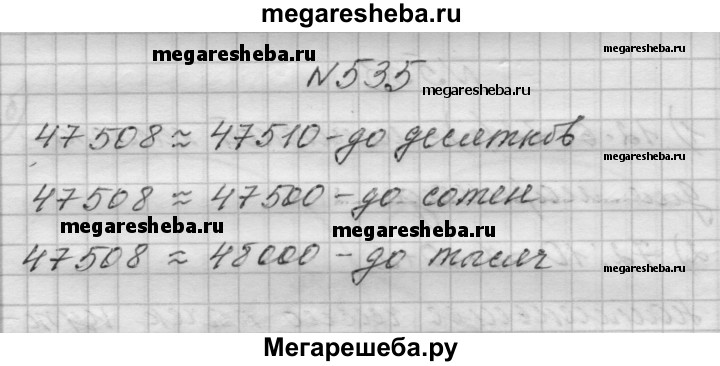 megaresheba.ru
megaresheba.ru
megaresheba.ru
N535
megaresheba.ru
47508 ≈ 47510 - до десятков
megaresheba.ru
47508 ≈ 47500 - до сотен
megaresheba.ru
megaresheba.ru
47508 ≈ 48000 - до тысяч
megaresheba.ru
Мегарешеба.ру